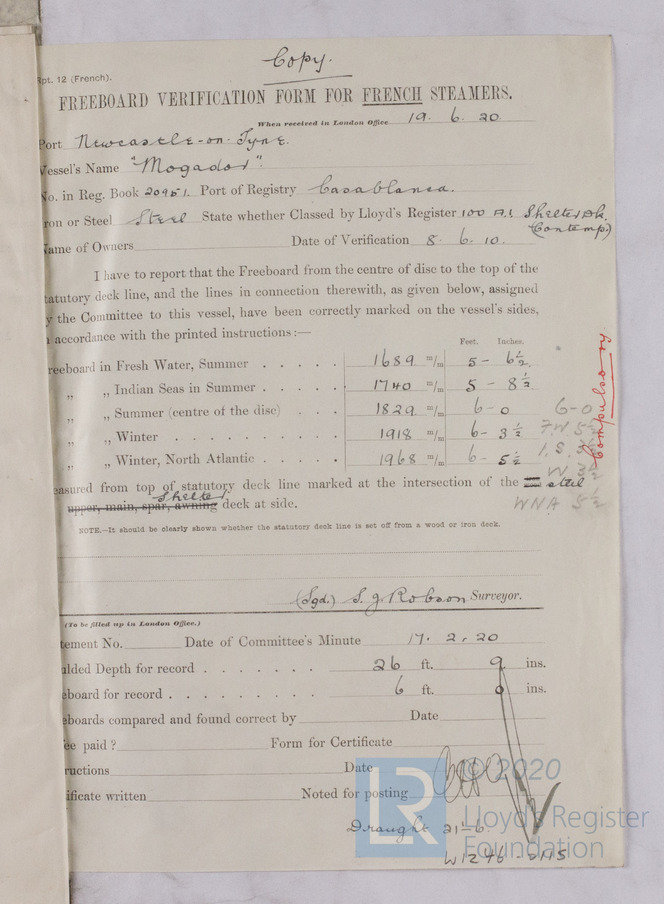 Copy.
Rpt. 12 (French).
FREEBOARD VERIFICATION FORM FOR FRENCH STEAMERS.
When received in London Office 19. 6. 20.
Port Newcastle-on-Tyne.
Vessel's Name "Mogador".
No. in Reg. Book 20951. Port of Registry Casablanca.
Iron or Steel Steel State whether Classed by Lloyd's Register 100 A.1 Shelter Dk.
(Contemp.)
Name of Owners Date of Verification 8. 6. 10.
I have to report that the Freeboard from the centre of disc to the top of the
statutory deck line, and the lines in connection therewith, as given below, assigned
by the Committee to this vessel, have been correctly marked on the vessel's sides,
accordance with the printed instructions:—
Feet. Inches.
Freeboard in Fresh Water, Summer . . . . . 1689 m/m 5 - 6½
" " Indian Seas in Summer . . . . . 1740 m/m 5 - 8½
" " Summer (centre of the disc) . . . 1829 m/m 6 - 0 6-0
" " Winter . . . . . . . . . 1918 m/m 6 - 3½ F.W 5½
" " Winter, North Atlantic . . . . . 1968 m/m 6 - 5½ I.S. 3½
W 3½
WNA 5½
Compulsory.
easured from top of statutory deck line marked at the intersection of the steel
Shelter
upper, main, spar, awning deck at side.
NOTE.—It should be clearly shown whether the statutory deck line is set off from a wood or iron deck.
(Sgd.) S. J. Robson Surveyor.
(To be filled up in London Office.)
tement No. Date of Committee's Minute 17. 2. 20
ulded Depth for record . . . . . . . 26 ft. 9 ins.
eboard for record . . . . . . . . . 6 ft. 0 ins.
eboards compared and found correct by Date
ee paid? Form for Certificate
ructions Date
ificate written Noted for posting
Draught 21-6.
W1246-0115
LR
© 2020
Lloyd's Register
Foundation